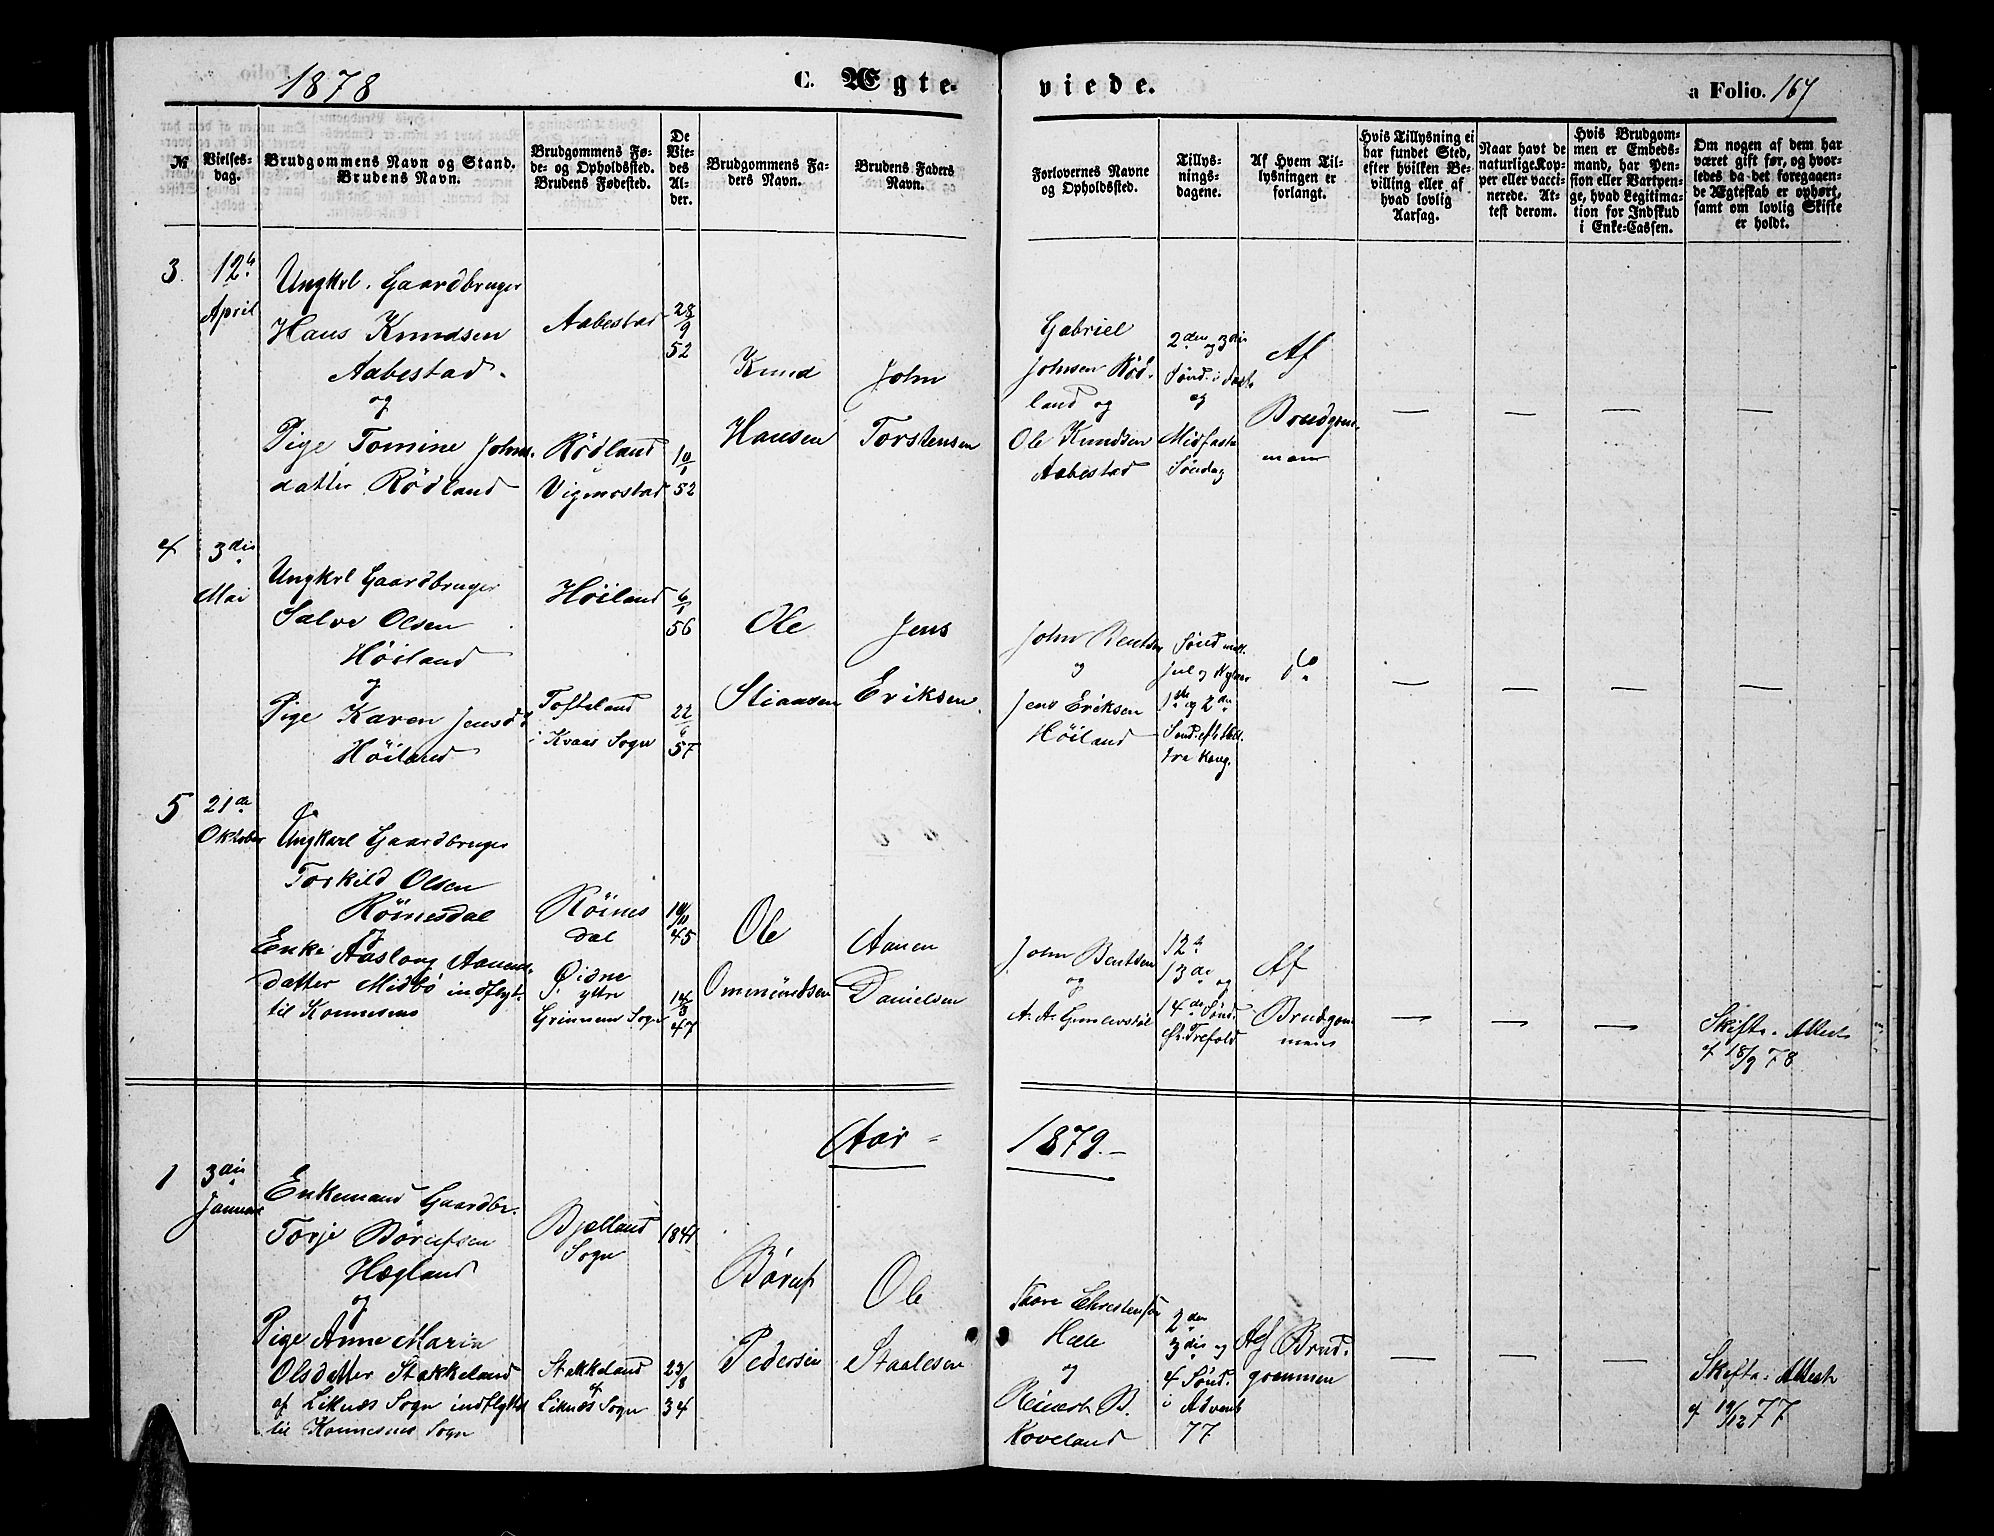 1878
C. Ægte-
viede.
a Folio. 167
№
Vielses-
dag.
Brudgommens Navn og Stand.
Brudens Navn.
Brudgommens Fø-
de- og Opholdssted.
Brudens Fødested.
De
Vie-
des
Al-
der.
Brudgommens Fa-
ders Navn.
Brudens Faders
Navn.
Forlovernes Navne
og Opholdssted.
Tillys-
nings-
dagene.
Af Hvem Til-
lysningen er
forlangt.
Hvis Tillysning ei
har fundet Sted,
efter hvilken Be-
villing eller af
hvad lovlig
Aarsag.
Naar havt de
naturlige Kop-
per eller vacci-
nerede. At-
test derom.
Hvis Brudgom-
men er Embeds-
mand, har Pen-
sion eller Vartpen-
ge, hvad Legitima-
tion for Indskud
i Enke-Cassen.
Om nogen af dem har
været gift før, og hvor-
ledes da det foregaaen-
de Ægteskab er ophørt,
samt om lovlig Skifte
er holdt.
3.
12te
April
Ungkrl. Gaardbruger
Hans Knudsen
Aabestad.
og
Pige Tomine Johns-
datter Rödland
Aabestad
Rödland
Vigmostad
28/9
52
10/1
52
Knud
Hansen
John
Torstensen
Gabriel
Johnsen Röd-
land og
Ole Knudsen
Aabestad
2den og 3die
Sönd. i Faste
og
Midfaste
Söndag
Af
Brudgom-
men
— — — —
4
3die
Mai
Ungkrl Gaardbruger
Salve Olsen
Höiland
og
Pige Karen Jensd
Höiland
Höiland
Tofteland
i Kvaas Sogn
6/1
56
22/6
57
Ole
Stiansen
Jens
Eriksen
John Bentsen
og
Jens Eriksen
Höiland
Sönd mell.
Jul og Nytaar
1ste og 2den
Sönd. eft. Hell.
tre Kong.
do
— — — —
5
21de
Oktober
Ungkarl Gaardbruger
Torkild Olsen
Röinesdal
og
Enke Aaslaug Aanens-
datter Midbö indflyt.
til Konnesmo
Röines
dal
Öidne
yttre
Grinnem Sogn
10/11
45
14/3
47
Ole
Ommundsen
Aanen
Danielsen
John Bentsen
og
A. A. Gunlevstöl
12te
13de og
14de Sönd.
e. Trefold
Af
Brudgom-
men
— — —
Skifte-Attest
af 18/9 78
Aar -
1879.-
1
3die
Januar
Enkemand Gaardbr.
Torje Börufsen
Hægland
og
Pige Anne Marie
Olsdatter Stakkeland
af Liknæs Sogn indflyttet
til Konnesmo Sogn
Bjelland
Sogn
Stakkeland
af
Liknæs Sogn
1841
23/8
34
Böruf
Pedersen
Ole
Staalesen
Tore Christensen
Hæle
og
Reinert B.
Koveland
2den
3die og
4 Sönd.
i Advent
77
Af Brud-
gommen
— — —
Skifte-Attest
af 19/12 77